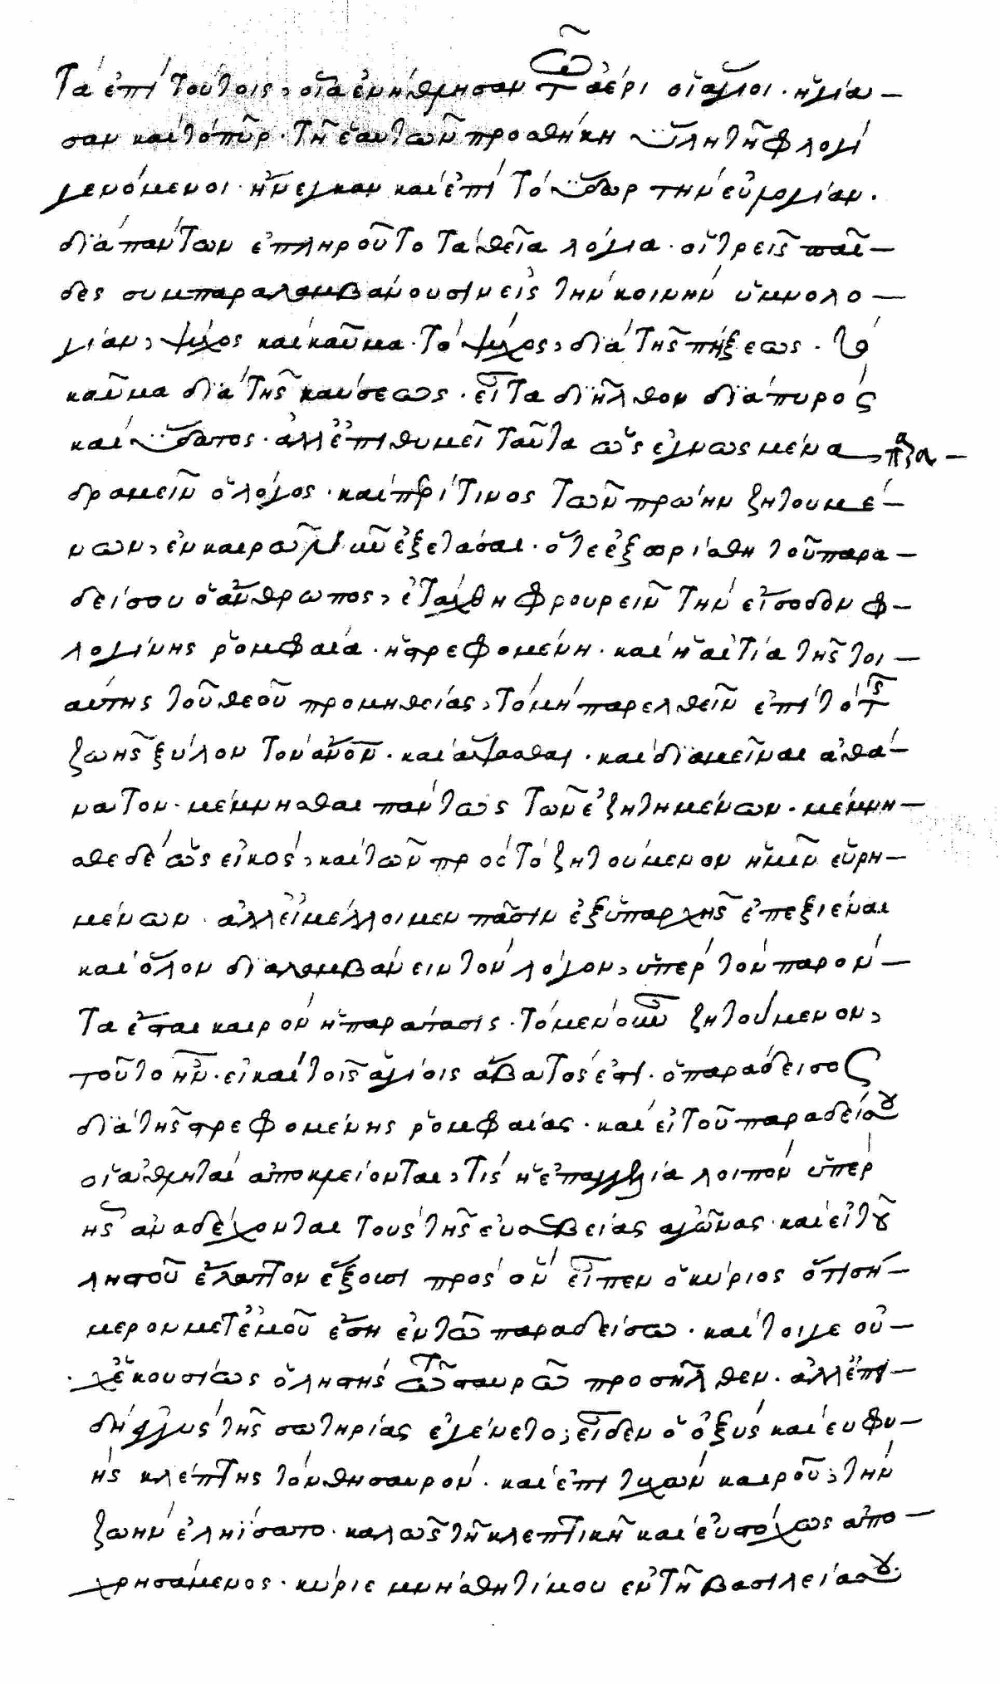 Τὰ ἐπὶ τούτοις, οἷα ἐνήθλησαν τῶ ἀέρι οἱ ἅγιοι· ἡγία-
σαν καὶ τὸ πῦρ· τῇ ἑαυτῶν προσθήκη ὕλη τῇ φλογὶ
γενόμενοι· ἤνεγκαν καὶ ἐπὶ τὸ ὕδωρ τὴν εὐλογίαν.
διὰ πάντων ἐπληροῦτο τὰ θεῖα λόγια· οἱ τρεῖς παῖ-
δες συμπαραλαμβάνουσιν εἰς τὴν κοινὴν ὑμνολο-
γίαν, ψύχος καὶ καῦμα· τὸ ψύχος, διὰ τῆς πήξεως· τὸ
καῦμα διὰ τῆς καύσεως· εἶτα διῆλθον διὰ πυρὸς
καὶ ὕδατος· ἀλλ' ἐπιθυμεῖ ταῦτα ὡς ἐγνωσμένα, παρα-
δραμεῖν ὁ λόγος· καὶ περί τινος τῶν πρώην ζητουμέ-
νων, ἐν καιρῶ μοι νῦν ἐξετάσαι· ὅτε ἐξωρίσθη τοῦ παρα-
δείσου ὁ ἄνθρωπος, ἐτάχθη φρουρεῖν τὴν εἴσοδον φ-
λογίνης ῥομφαία· ἡ στρεφομένη· καὶ ἡ αἰτία τῆς τοι-
αύτης τοῦ θεοῦ προμηθείας, τὸ μὴ παρελθεῖν ἐπὶ τὸ τῆς
ζωῆς ξύλον τὸν ἄνον· καὶ ἅψασθαι· καὶ διαμεῖναι ἀθά-
νατον· μέμνησθαι πάντως τῶν ἐζητημένων· μέμνη-
σθε δὲ ὡς εἰκὸς, καὶ τῶν πρὸς τὸ ζητούμενον ἡμῖν εὑρη-
μένων· ἀλλ' εἰ μέλλοιμεν πᾶσιν ἐξ ὑπαρχῆς ἐπεξιέναι
καὶ ὅλον διαλαμβάνειν τὸν λόγον, ὑπὲρ τὸν παρόν-
τα ἔσται καιρὸν ἡ παράτασις· τὸ μὲν οὖν ζητούμενον,
τοῦτο ἦν· εἰ καὶ τοῖς ἁγίοις ἄβατός ἐστι· ὁ παράδεισος
διὰ τῆς στρεφομένης ῥομφαίας· καὶ εἰ τοῦ παραδείσου
οἱ ἀθληταὶ ἀποκλείονται, τίς ἡ ἐπαγγελία λοιπὸν ὑπὲρ
ἧς ἀναδέχονται τοὺς τῆς εὐσεβείας ἀγῶνας· καὶ εἰ τοῦ
ληστοῦ ἔλαττον ἕξουσι πρὸς ὃν εἶπεν ὁ κύριος ὅτι σή-
μερον μετ' ἐμοῦ ἔση ἐν τῶ παραδείσω· καί τοι γε οὐ-
χ' ἑκουσίως ὁ ληστὴς τῶ σταυρῶ προσῆλθεν· ἀλλ' ἐπι-
δὴ ἐγγὺς τῆς σωτηρίας ἐγένετο, εἶδεν ὁ ὀξὺς καὶ εὐφυ-
ὴς κλέπτης τὸν θησαυρόν· καὶ ἐπιτυχὼν καιροῦ, τὴν
ζωὴν ἐληΐσατο· καλῶς τῇ κλεπτικῇ καὶ εὐστόχως ἀπο-
χρησάμενος· κύριε μνήσθητί μου ἐν τῇ βασιλεία σου·